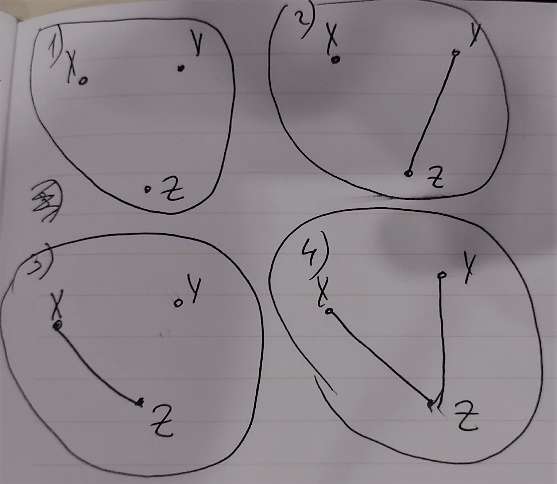 1)
X
Y
Z
2)
X
Y
Z
3)
X
Y
Z
4)
X
Y
Z